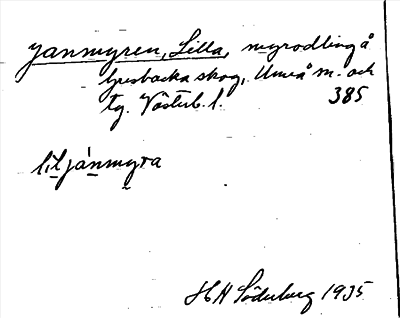 Janmyren, Lilla, myrodling å
Ljusbacka skog, Umeå m. och
tg. Västerb. l. 385
liljánmyra
H H Söderberg 1935